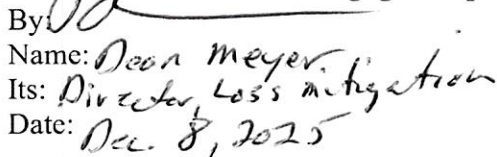 By:
Name: Dean Meyer
Its: Director, Loss mitigation
Date: Dec. 8, 2025